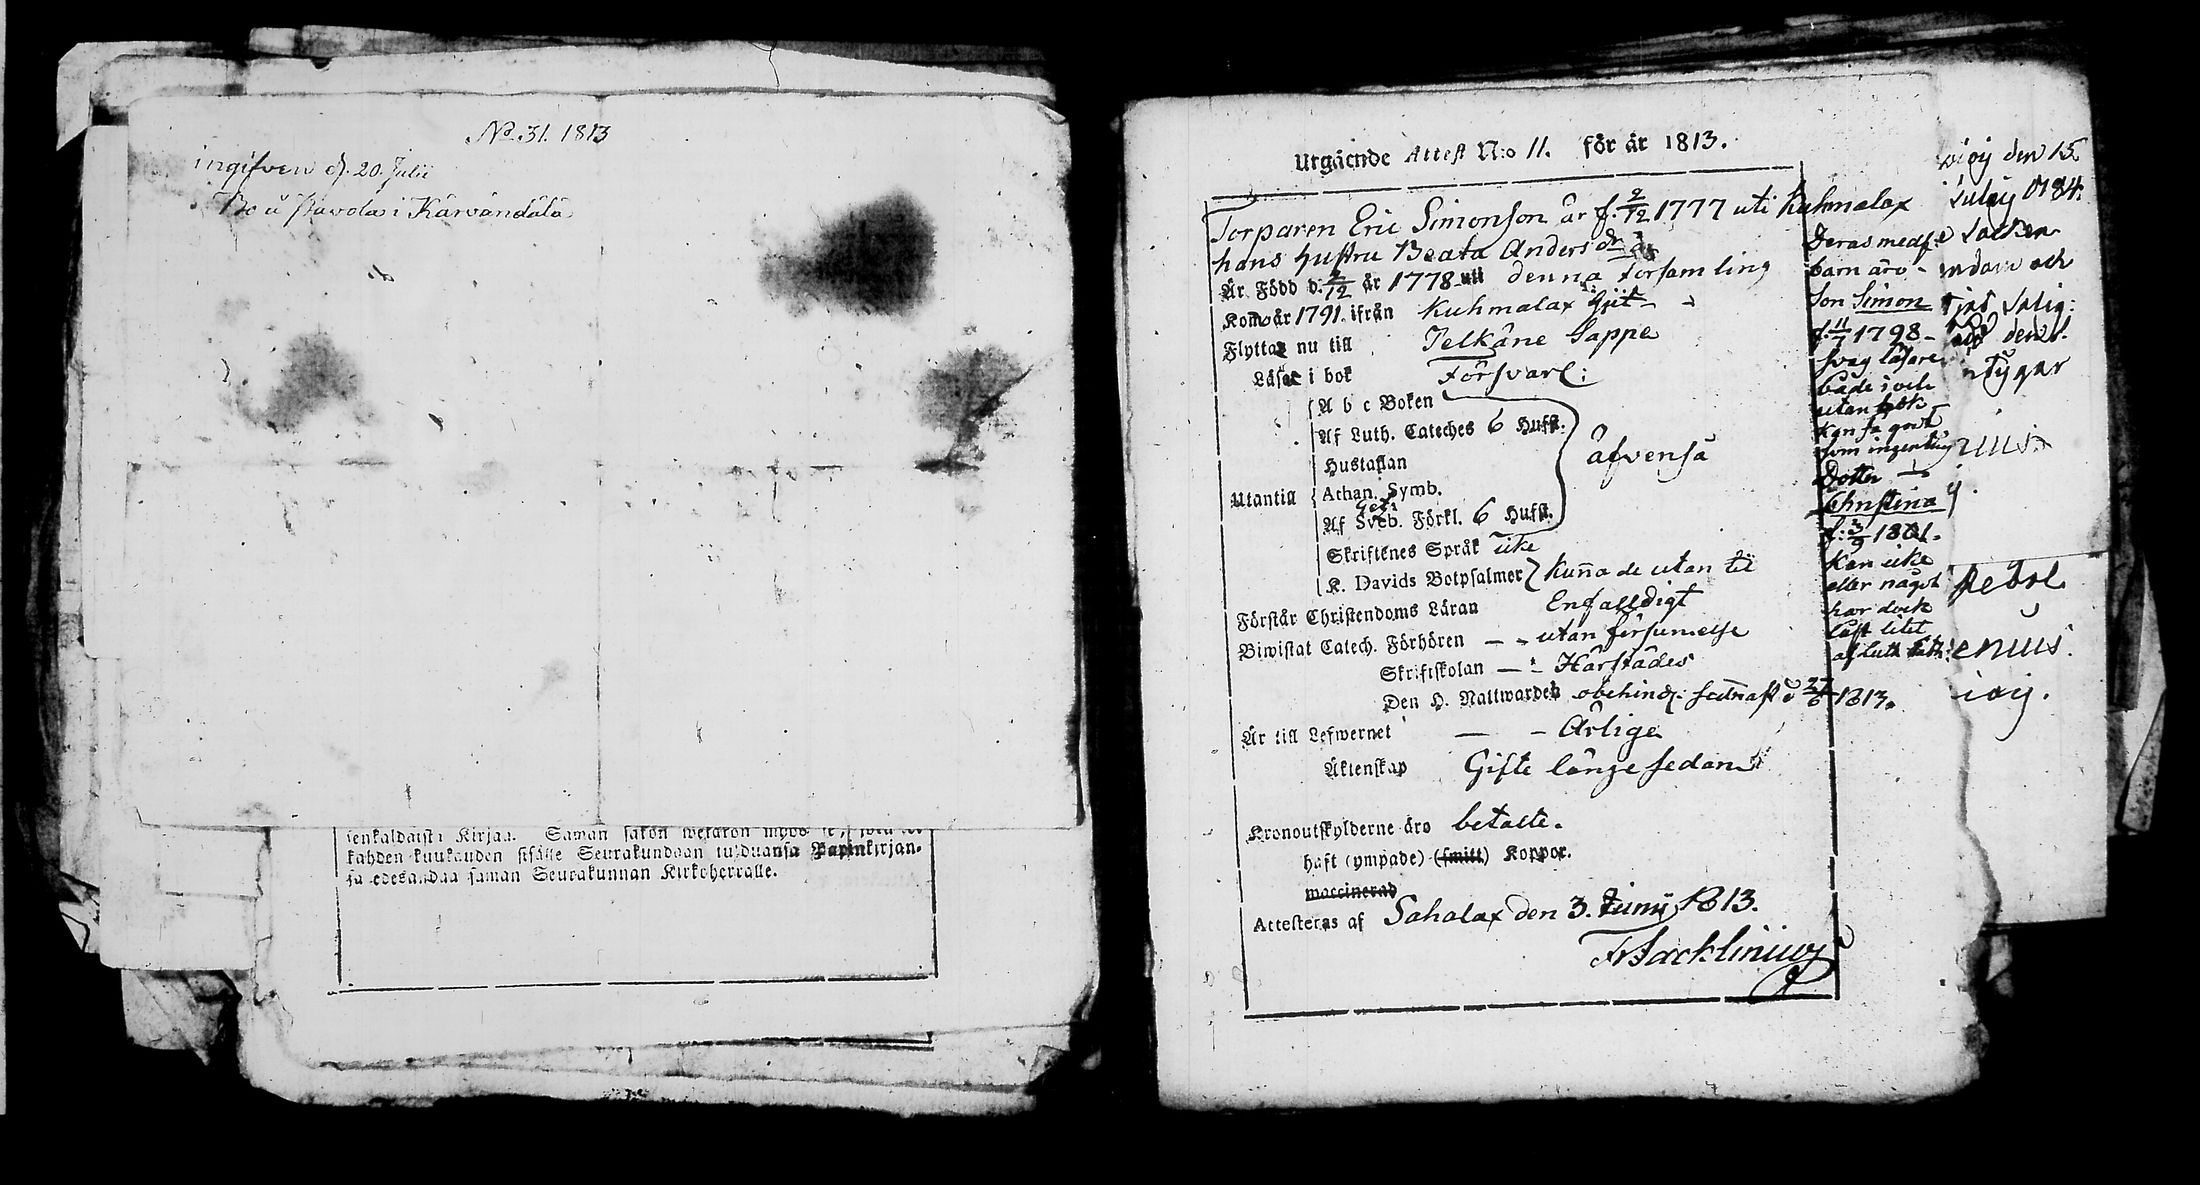 No. 31. 1813
ingifven d. 20. Julii
Bo å Pavola i Kärvändälä
senkaldaisti Kirjan. Saman
kahden kuukauden sisälle Seurakundaan tulduansa Papinkirjan-
sa edesandaa saman Seurakunnan Kirkoherralle.
Utgående Attest N:o 11. för år 1813.
Torparen Eric Simonson är f. 9/12 1777 uti Kuhmalax
hans hustru Beata Andersdr är
Är Född d. 2/12 år 1778 uti denna församling
Kom år 1791. ifrån Kuhmalax hit
Flyttar nu till Pelkäne Sappe
Läser i bok Försvarl:
A b c Boken
Af Luth. Cateches 6 Hufst.
Hustaflan
åfvenså
Utantill Athan. Symb.
Af Sveb. Förkl. 6 Hufst.
Skriftenes Språk icke
K. Davids Botpsalmer kunna de utan til
Förstår Christendoms Läran Enfalldigt
Biwistat Catech. Förhören — - utan försummelse
Skriftskolan — - Härstädes
Den H. Nattwarden obehindr: sednast d 27/5 1813.
Är till Lefwernet — - Ärlige
Äktenskap Gifte länge sedan
Kronoutskylderne äro betalte.
haft (ympade) (smitt) Koppor.
waccinerad
Attesteras af Sahalax den 3. Junii 1813.
Fr Sacklinius
Deras medf:e
barn äro -
Son Simon
f. 11/7 1798 -
svag läsare
både i och
utan bok
kan så godt
som ingenting
Dotter
Christina
f: 3/9 1801.
Kan icke
eller något
har dock
läst litet
af Luth Cath:
den 15.
och
Salig: